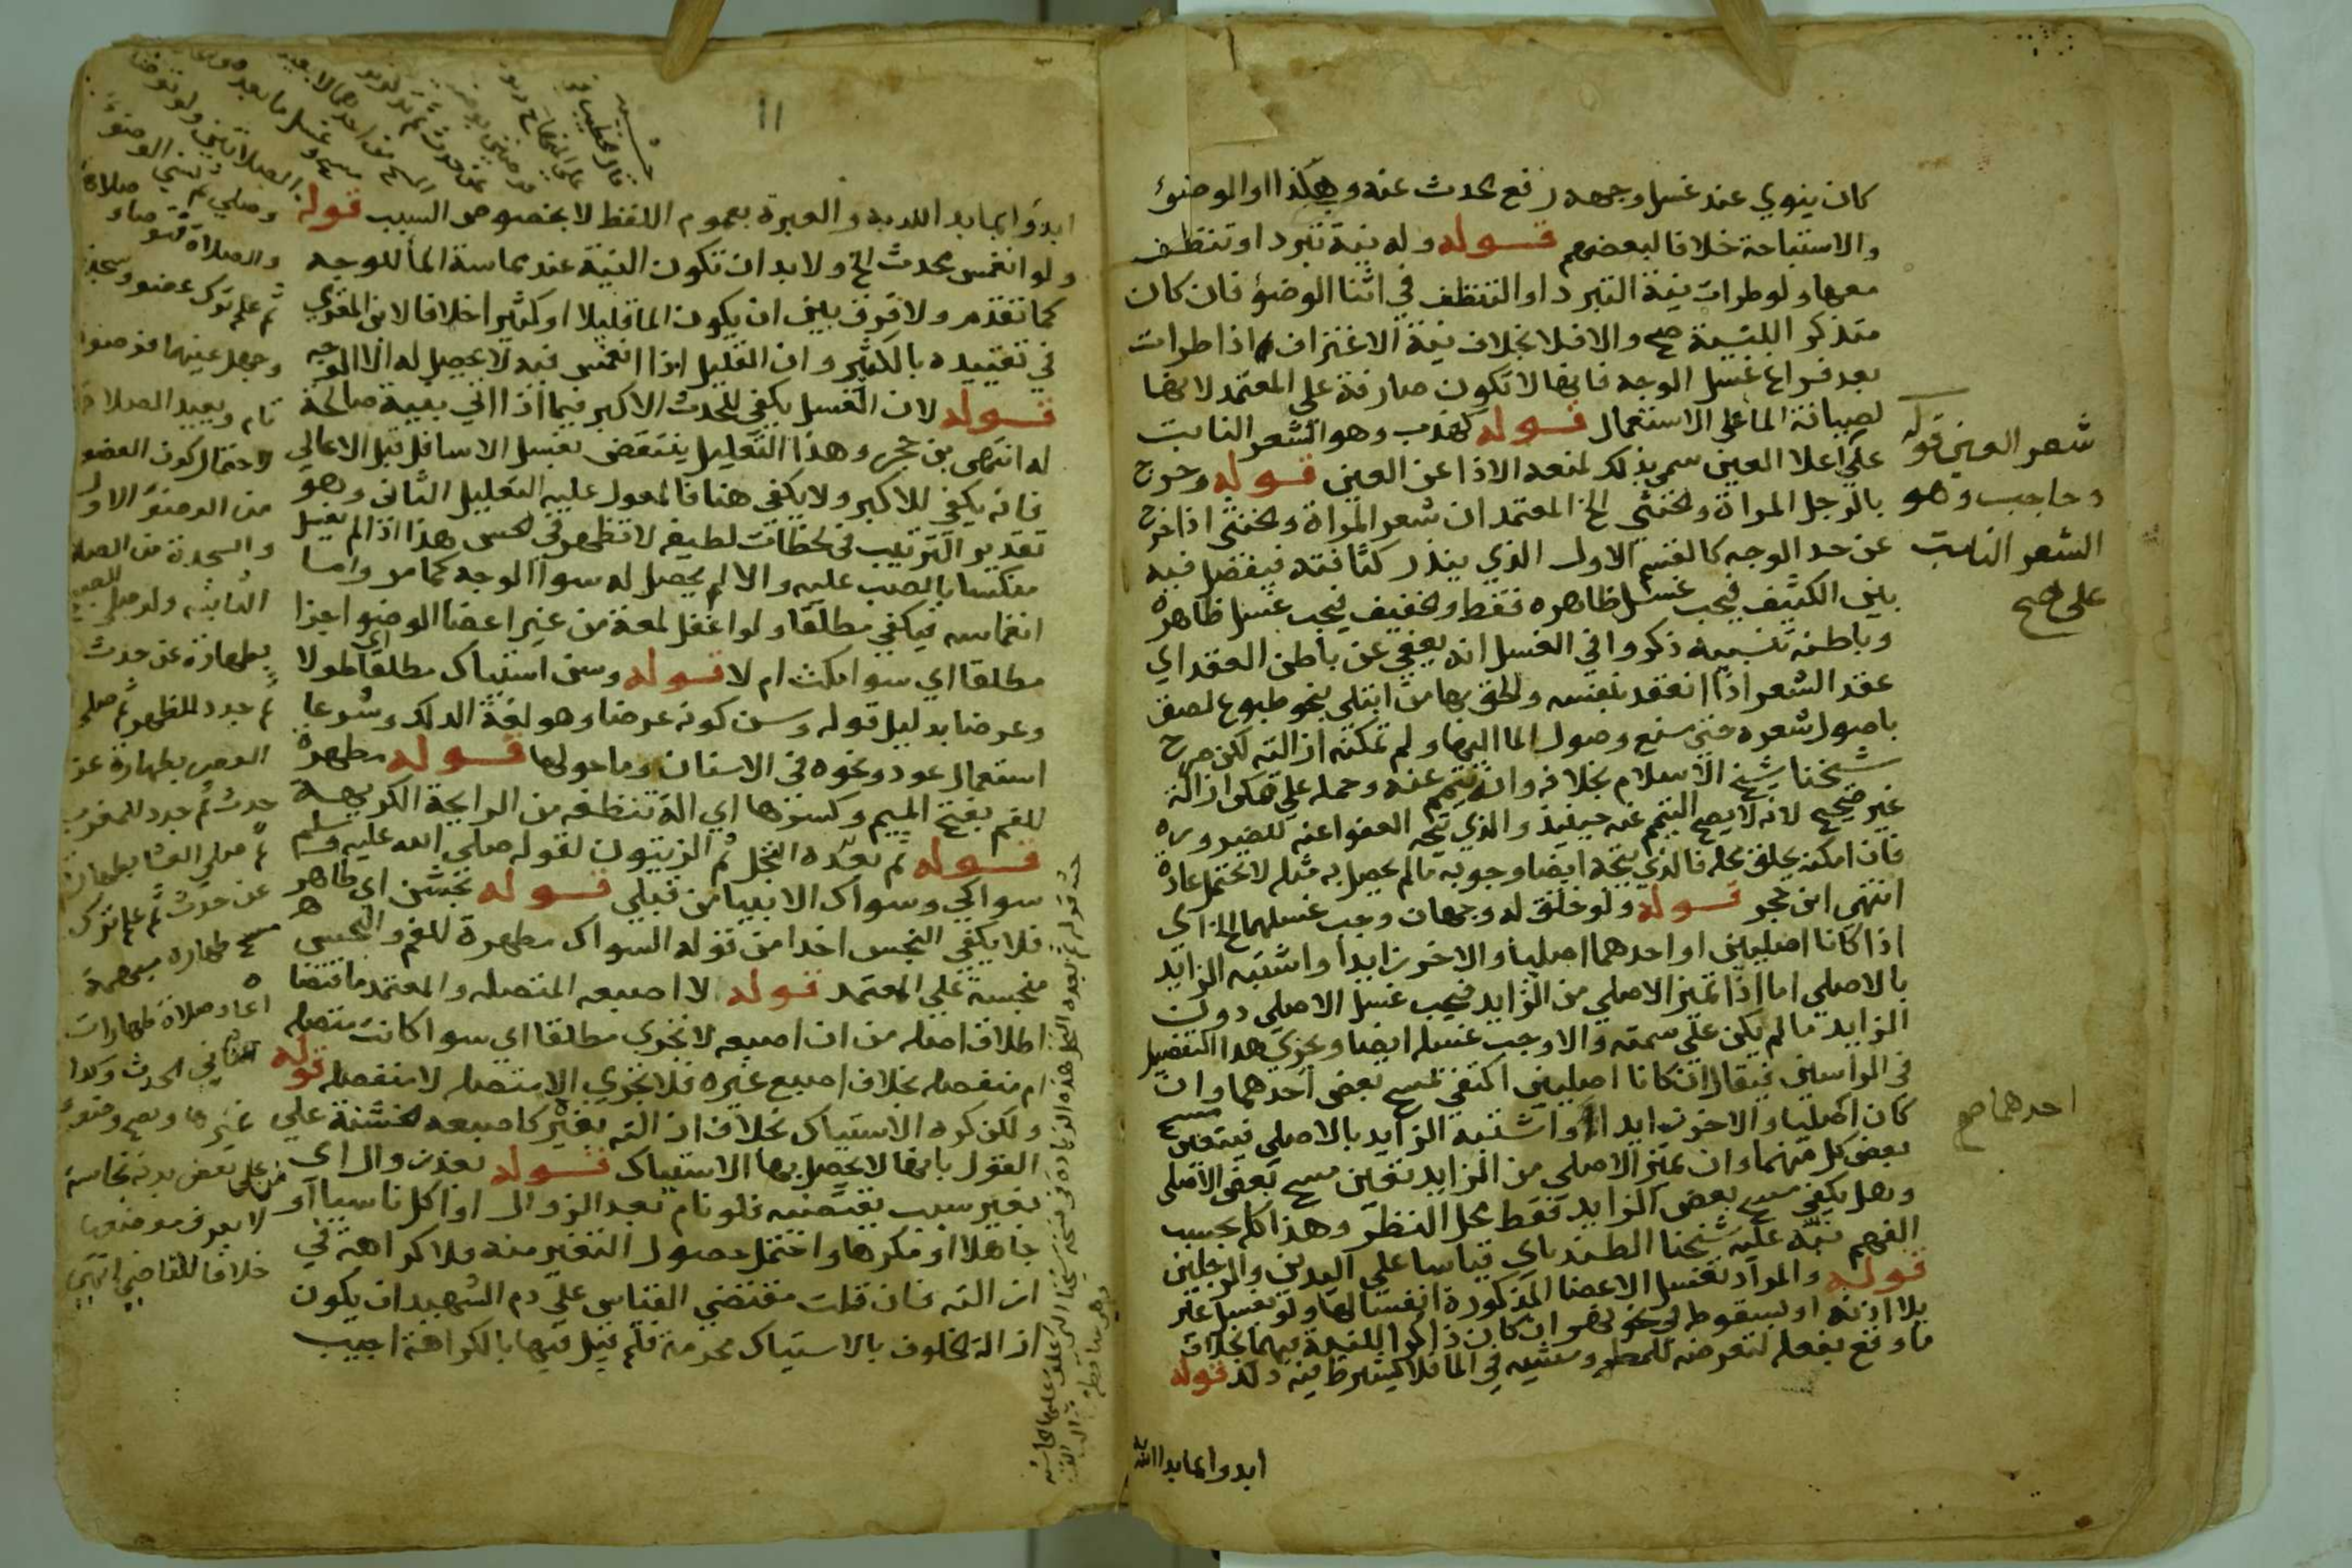 كان ينوي عند غسل وجهه رفع الحدث عنه وهكذا او الوضوء
والاستباحة خلافا لبعضهم قوله وله نية تبرد او تنظف
معها ولو طرات نية التبرد او التنظف في اثنا الوضوء فان كان
متذكر اللنية صح والا فلا بخلاف نية الاغتراف اذا طرات
بعد فراغ غسل الوجه فانها لا تكون صارفة على المعتمد لانها
لصيانة الما على الاستعمال قوله كهدب وهو الشعر النابت
على اعلا العين سمي بذلك لمنعه الاذا عن العين قوله وخرج
بالرجل المراة والخنثي الخ المعتمد ان شعر المراة والخنثي اذا خرج
عن حد الوجه كالقسم الاول الذي يندر كثافته فيفضل فيه
بين الكثيف فيجب غسل ظاهره فقط والخفيف فيجب غسل ظاهره
وباطنه تنبيه ذكروا في الغسل انه يعفي عن باطن العقد اي
عقد الشعر اذا انعقد بنفسه والحق بها من ابتلي بنحو طبوع لصق
باصول شعره حتى منع وصول الما اليها ولم تمكنه ازالته لكن صرح
شيخنا شيخ الاسلام بخلافه وانه يتيمم عنه وحمله علي ممكن ازالته
غير صحيح لانه لا يصح التيمم عنه حينئذ والذي يتجه العفو عنه للضرورة
فان امكنه حلق محله فالذي يتجه ايضا وجوبه ما لم يحصل به مثله لا تحتمل عادة
انتهى ابن حجر قوله ولو خلق له وجهان وجب غسلهما الخ اي
اذا كانا اصليين او احدهما اصليا والاخر زايدا واشتبه الزايد
بالاصلي اما اذا تميز الاصلي من الزايد فيجب غسل الاصلي دون
الزايد ما لم يكن علي سمته والا وجب غسله ايضا ويجري هذا التفصيل
في الراسين فيقال ان كانا اصليين اكتفي بمسح بعض احدهما وان
كان اصليا والاخر زايدا واشتبه الزايد بالاصلي فيتعين مسح
بعض كل منهما وان تميز الاصلي من الزايد تعين مسح بعض الاصلي
وهل يكفي مسح بعض الزايد فقط محل النظر وهذا كله بحسب
الفهم نبه عليه شيخنا الطندتاي قياسا علي اليدين والرجلين
قوله والمراد بغسل الاعضا المذكورة انغسالها ولو بغسل غير
بلا اذنه او بسقوطه في نحو نهر ان كان ذاكرا للنية فيهما بخلاف
ما وقع بفعله لتعرضه للمطر ومشيه في الما فلا يشترط فيه ذلك قوله
ابدوا بما بدا الله به
شعر العين قوله
وحاجب وهو
الشعر النابت
على صح
احدهما صح
11
ابدؤا بما بدا الله به والعبرة بعموم اللفظ لا بخصوص السبب قوله
ولو انغمس محدث الخ ولا بد ان تكون النية عند مماسة الما للوجه
كما تقدم ولا فرق بين ان يكون الما قليلا او كثيرا خلافا لابن المقري
في تقييده بالكثير وان القليل اذا انغمس فيه لا يحصل له الا الوجه
قوله لان الغسل يكفي للحدث الاكبر فيما اذا اتي بنية صالحة
له انتهى بن حجر وهذا التعليل ينتقض بغسل الاسافل قبل الاعالي
فانه يكفي للاكبر ولا يكفي هنا فالمعول عليه التعليل الثاني وهو
تقدير الترتيب في لحظات لطيفة لا تظهر في الحس هذا اذا لم يغسل
منكسا بالصب عليه والا لم يحصل له سوا الوجه كما مر واما
انغماسه فيكفي مطلقا ولو اغفل لمعة من غير اعضا الوضو اجزا
مطلقا اي سوا مكث ام لا قوله وسن استياك مطلقا اي طولا
وعرضا بدليل قوله وسن كونه عرضا وهو لغة الدلك وشرعا
استعمال عود ونحوه في الاسنان وما حولها قوله مطهرة
للفم بفتح الميم وكسرها اي الة تنظفه من الرايحة الكريهة
قوله ثم بعده النخل ثم الزيتون لقوله صلى الله عليه وسلم
سواكي وسواك الانبيا من قبلي قوله بخشن اي طاهر
فلا يكفي النجس اخدا من قوله السواك مطهرة للفم والنجس
منجسة علي المعتمد قوله لا اصبعه المتصله والمعتمد ما اقتضا
اطلاق اصله من ان اصبعه لا تجزي مطلقا اي سوا كانت متصله
ام منفصله بخلاف اصبع غيره فلا تجزي الا متصله لا منفصله قوله
ولكن كره الاستياك بخلاف ازالته بغيره كاصبعه الخشنة علي
القول بانها لا يحصل بها الاستياك قوله بعد زوال اي
بغير سبب يقتضيه فلو نام بعد الزوال او اكل ناسيا او
جاهلا او مكرها واحتمل حصول التغير منه فلا كراهة في
ازالته فان قلت مقتضي القياس علي دم الشهيد ان يكون
ازالة الخلوف بالاستياك محرمة فلم قيل فيها بالكراهة اجيب
وصلي ثم نسي الوضوء
ثم علم ترك عضو وسجدة
وجهل عينهما فوضوا
تام ويعيد الصلاة
لاحتمال كون العضو
من الوضوء الاول
والسجدة من الصلاة
الثانيه ولو صلي الصبح
بطهارة عن حدث
ثم جدد للظهر ثم صلى
العصر بطهارة عن
حدث ثم جدد للمغرب
ثم صلي العشا بطهارة
عن حدث ثم علم ترك
مسح طهارة مبهمة
اعاد صلاة طهارات
الحدث وكذا
غيرها ويصح وضوء
من على بعض بدنه نجاسة
لا يعرف موضعها
خلافا للقاضي انتهى